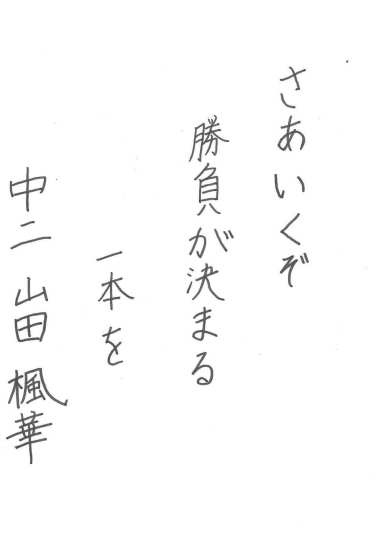 さあいくぞ
勝負が決まる
一本を
中二 山田楓華